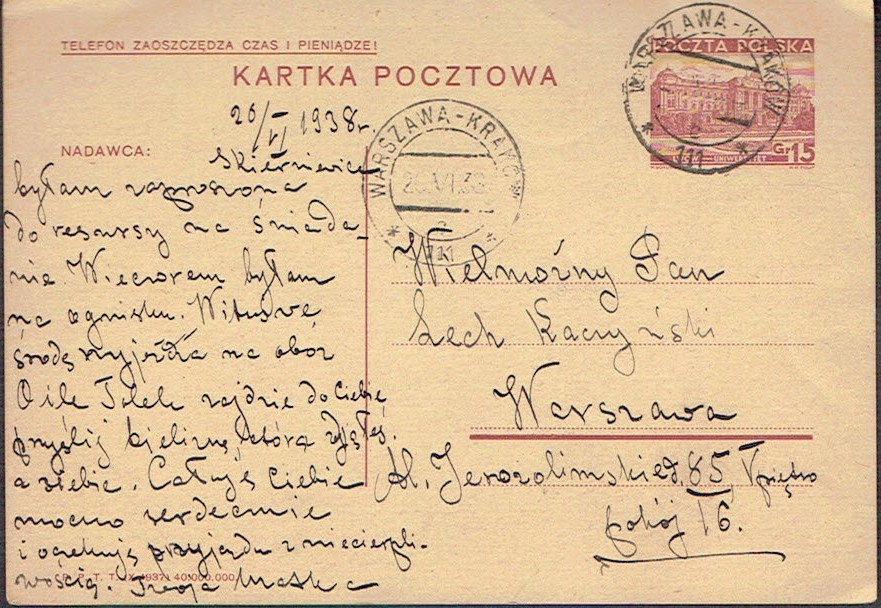 TELEFON ZAOSZCZĘDZA CZAS I PIENIĄDZE!
KARTKA POCZTOWA
POCZTA POLSKA
LWÓW — UNIWERSYTET
Gr 15
WARSZAWA - KRAKÓW
111
WARSZAWA - KRAKÓW
26.VI.38
111
NADAWCA:
26/VI 1938 r.
Skierniewice
byłam zaproszona
do resursy na śniada-
nie. Wieczorem byłam
na ognisku. Wituś we
środę wyjeżdża na obóz
O ile Tolek zajdzie do Ciebie
przyślij bieliznę, która
u siebie. Całuję Ciebie
mocno serdecznie
i oczekuję przyjazdu z niecierpli-
wością. Twoja Matka
P. P. T. T. IX 1937. 40.000.000.
Wielmożny Pan
Lech Kaczyński
Warszawa
Al. Jerozolimskie 85, V piętro
pokój 16.